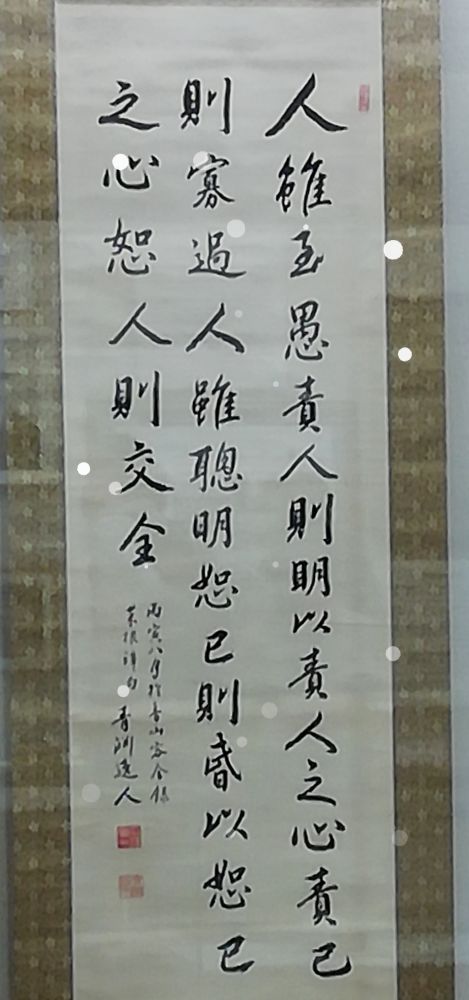 人雖至愚責人則明以責人之心責己
則寡過人雖聰明恕己則昏以恕己
之心恕人則交全
丙寅八月於青山客舍錄
菜根譚句 青洲逸人